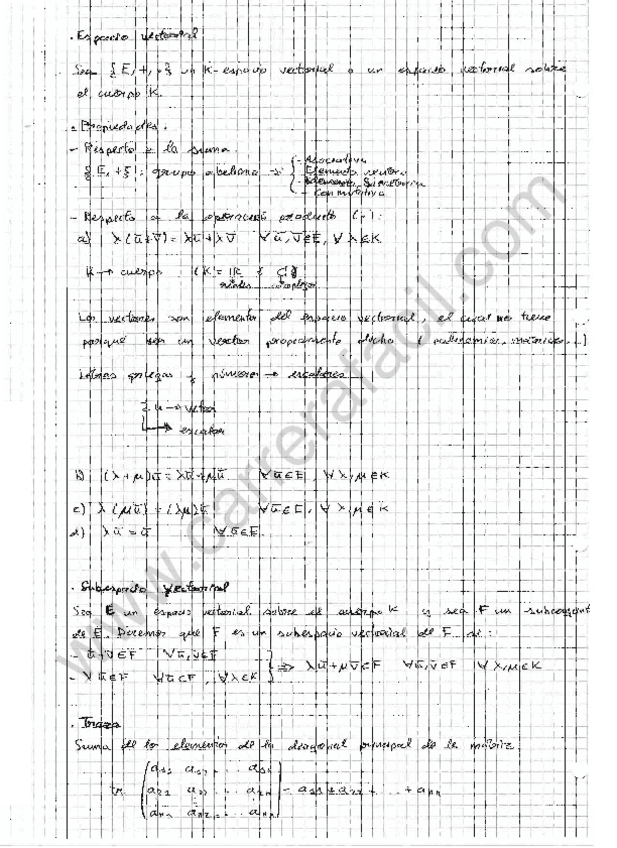 . Espacio vectorial
Sea {E, +, ·} un K-espacio vectorial o un espacio vectorial sobre
el cuerpo K.
- Propiedades.
- Respecto a la suma.
{E, +}: grupo abeliano → { - Asociativa
- Elemento neutro
- Elemento Simétrico
- Conmutativa
- Respecto a la operación producto (·):
a) λ(ū+v̄) = λū + λv̄ ∀ ū, v̄ ∈ E, ∀ λ ∈ K
K → cuerpo (K = ℝ ó ℂ)
reales complejos
Los vectores son elementos del espacio vectorial, el cual no tiene
porqué ser un vector propiamente dicho (polinomios, matrices...)
Letras griegas y números → escalares
u → vector
→ escalar
b) (λ+μ)ū = λū + μū ∀ ū ∈ E, ∀ λ, μ ∈ K
c) λ(μū) = (λμ)ū ∀ ū ∈ E, ∀ λ, μ ∈ K
d) λū = ū ∀ ū ∈ E
. Subespacio vectorial
Sea E un espacio vectorial sobre el cuerpo K y sea F un subconjunto
de E. Diremos que F es un subespacio vectorial de F si:
- ū+v̄ ∈ F ∀ ū, v̄ ∈ F
- λū ∈ F ∀ ū ∈ F, ∀ λ ∈ K } ⇒ λū + μv̄ ∈ F ∀ ū, v̄ ∈ F ∀ λ, μ ∈ K
. Traza
Suma de los elementos de la diagonal principal de la matriz
a₁₁ a₁₂ ... a₁ₙ
tr a₂₁ a₂₂ ... a₂ₙ = a₁₁ + a₂₂ + ... + aₙₙ
aₙ₁ aₙ₂ ... aₙₙ
www.carrerafacil.com